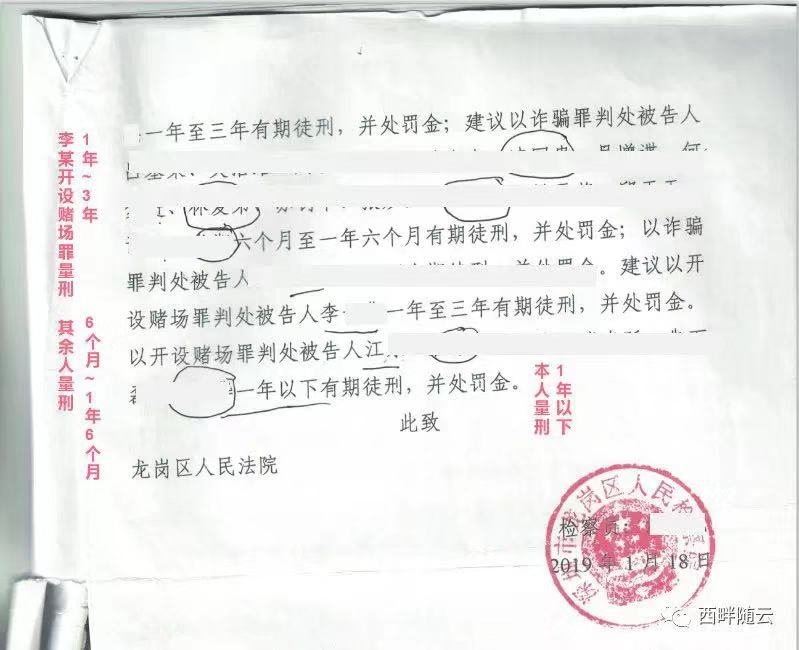 一年至三年有期徒刑，并处罚金；建议以诈骗罪判处被告人
六个月至一年六个月有期徒刑，并处罚金；以诈骗
罪判处被告人
并处罚金。建议以开
设赌场罪判处被告人李
一年至三年有期徒刑，并处罚金。
以开设赌场罪判处被告人江
一年以下有期徒刑，并处罚金。
此致
龙岗区人民法院
检察员：
2019年1月18日
龙岗区人民检
1年~3年
李某开设赌场罪量刑
6个月~1年6个月
其余人量刑
1年以下
本人量刑
西畔随云